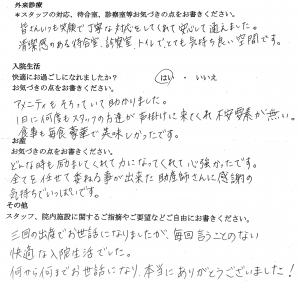 外来診療
*スタッフの対応、待合室、診察室等お気づきの点をお書きください。
皆さんいつも笑顔で丁寧な対応をしてくれて安心して通えました。
清潔感のある待合室、診察室、トイレで、とても気持ち良い空間です。
入院生活
快適にお過ごしになれましたか? はい ・ いいえ
お気づきの点をお書きください。
アメニティもそろっていて助かりました。
1日に何度もスタッフの方達が声掛けに来てくれ不安要素が無い。
食事も毎食豪華で美味しかったです。
お産
お気づきの点をお書きください。
どんな時も励ましてくれて力になってくれて心強かったです。
全てを任せて委ねる事が出来た助産師さんに感謝の
気持ちでいっぱいです。
その他
スタッフ、院内施設に関するご指摘やご要望などご自由にお書きください。
三回の出産でお世話になりましたが、毎回言うことのない
快適な入院生活でした。
何から何までお世話になり、本当にありがとうございました!